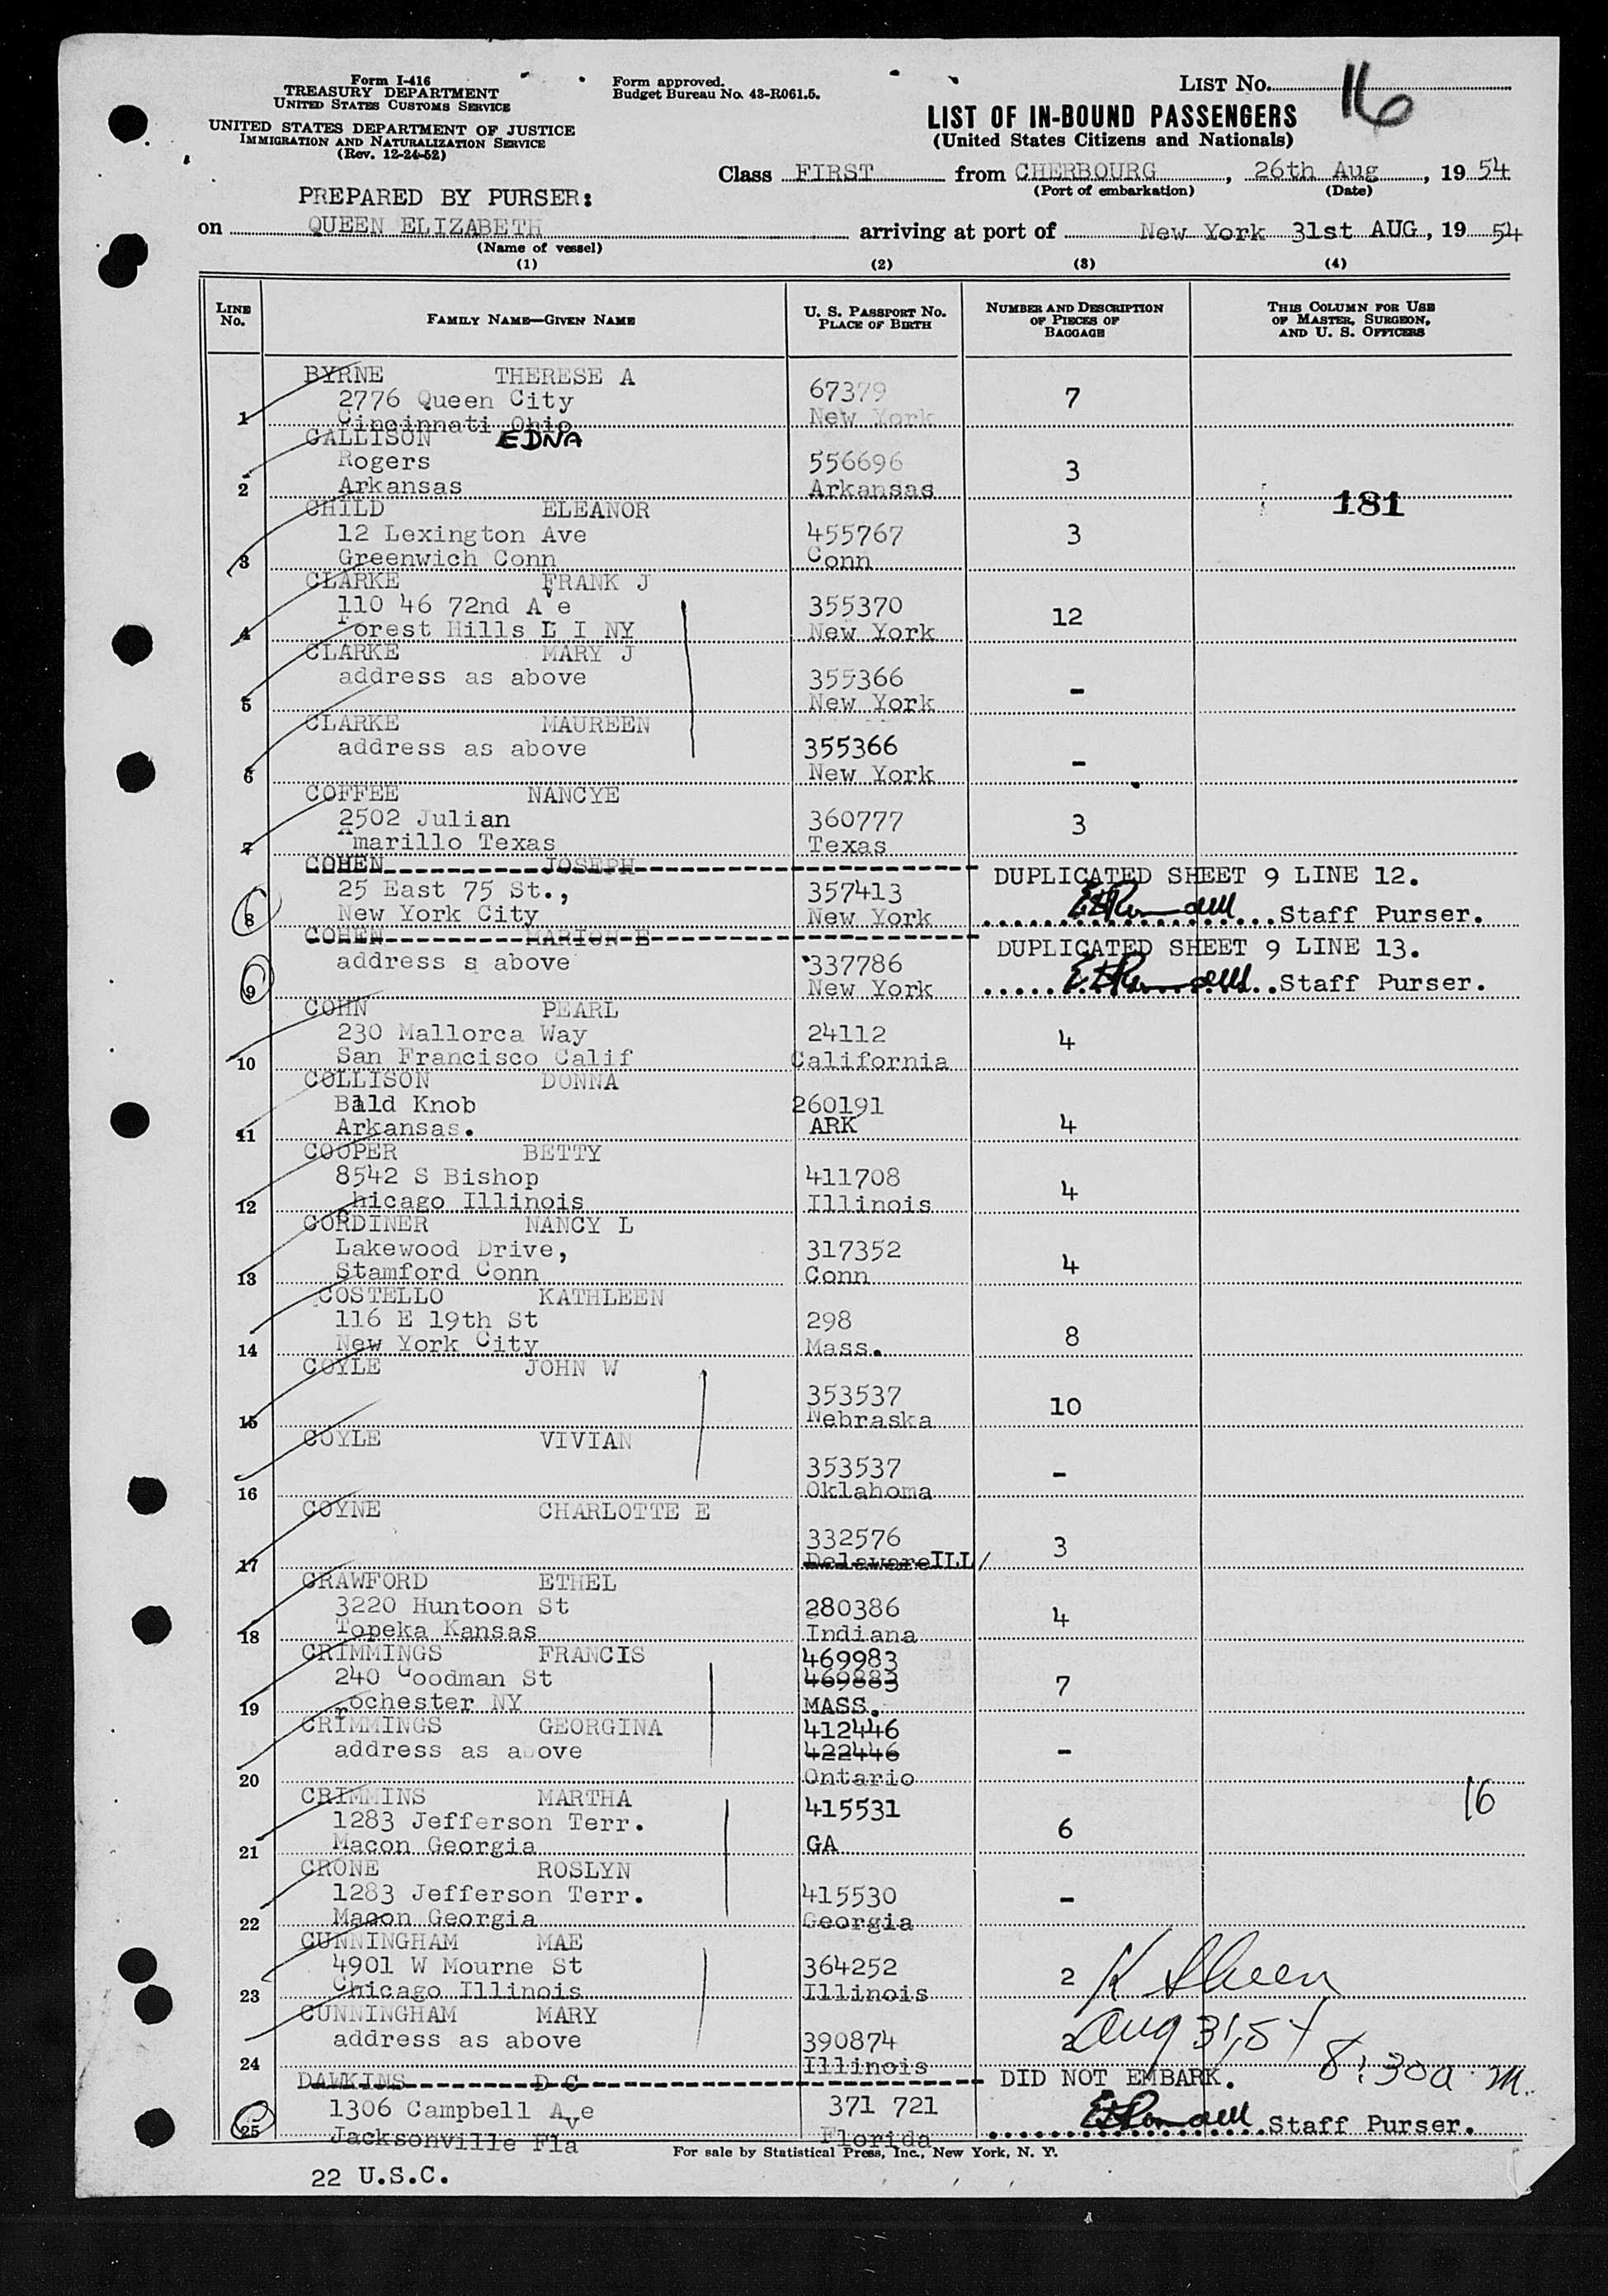 Form I-416
TREASURY DEPARTMENT
UNITED STATES CUSTOMS SERVICE
UNITED STATES DEPARTMENT OF JUSTICE
IMMIGRATION AND NATURALIZATION SERVICE
(Rev. 12-24-52)
Form approved.
Budget Bureau No. 43-R061.5.
LIST No. 16
LIST OF IN-BOUND PASSENGERS
(United States Citizens and Nationals)
Class FIRST from CHERBOURG, 26th Aug, 19 54
(Port of embarkation) (Date)
PREPARED BY PURSER:
on QUEEN ELIZABETH arriving at port of New York 31st AUG, 19 54
(Name of vessel)
(1) (2) (3) (4)
LINE No. FAMILY NAME—GIVEN NAME U. S. PASSPORT No. PLACE OF BIRTH NUMBER AND DESCRIPTION OF PIECES OF BAGGAGE THIS COLUMN FOR USE OF MASTER, SURGEON, AND U. S. OFFICERS
BYRNE THERESE A
2776 Queen City 67379 7
1 Cincinnati Ohio New York
CALLISON EDNA
Rogers 556696 3
2 Arkansas Arkansas
181
CHILD ELEANOR
12 Lexington Ave 455767 3
3 Greenwich Conn Conn
CLARKE FRANK J
110 46 72nd Ave 355370 12
4 Forest Hills L I NY New York
CLARKE MARY J
address as above 355366 -
5 New York
CLARKE MAUREEN
address as above 355366 -
6 New York
COFFEE NANCYE
2502 Julian 360777 3
7 Amarillo Texas Texas
COHEN JOSEPH DUPLICATED SHEET 9 LINE 12.
25 East 75 St., 357413
8 New York City New York Staff Purser.
COHEN MARION E DUPLICATED SHEET 9 LINE 13.
address s above 337786
9 New York Staff Purser.
COHN PEARL
230 Mallorca Way 24112 4
10 San Francisco Calif California
COLLISON DONNA
Bald Knob 260191
11 Arkansas. ARK 4
COOPER BETTY
8542 S Bishop 411708 4
12 Chicago Illinois Illinois
CORDINER NANCY L
Lakewood Drive, 317352 4
13 Stamford Conn Conn
COSTELLO KATHLEEN
116 E 19th St 298 8
14 New York City Mass.
COYLE JOHN W
353537 10
15 Nebraska
COYLE VIVIAN
353537 -
16 Oklahoma
COYNE CHARLOTTE E
332576 3
17 Delaware ILL/
CRAWFORD ETHEL
3220 Huntoon St 280386 4
18 Topeka Kansas Indiana
CRIMMINGS FRANCIS 469983
240 Goodman St 469883 7
19 rochester NY MASS.
CRIMMINGS GEORGINA 412446
address as above 422446 -
20 Ontario
CRIMMINS MARTHA 415531 16
1283 Jefferson Terr. 6
21 Macon Georgia GA
CRONE ROSLYN
1283 Jefferson Terr. 415530 -
22 Macon Georgia Georgia
CUNNINGHAM MAE
4901 W Mourne St 364252 2
23 Chicago Illinois Illinois
CUNNINGHAM MARY Aug 31, 54
address as above 390874 2
24 Illinois 8:30 a m.
DAWKINS D C DID NOT EMBARK.
1306 Campbell Ave 371 721
25 Jacksonville Fla Florida Staff Purser.
For sale by Statistical Press, Inc., New York, N. Y.
22 U.S.C.